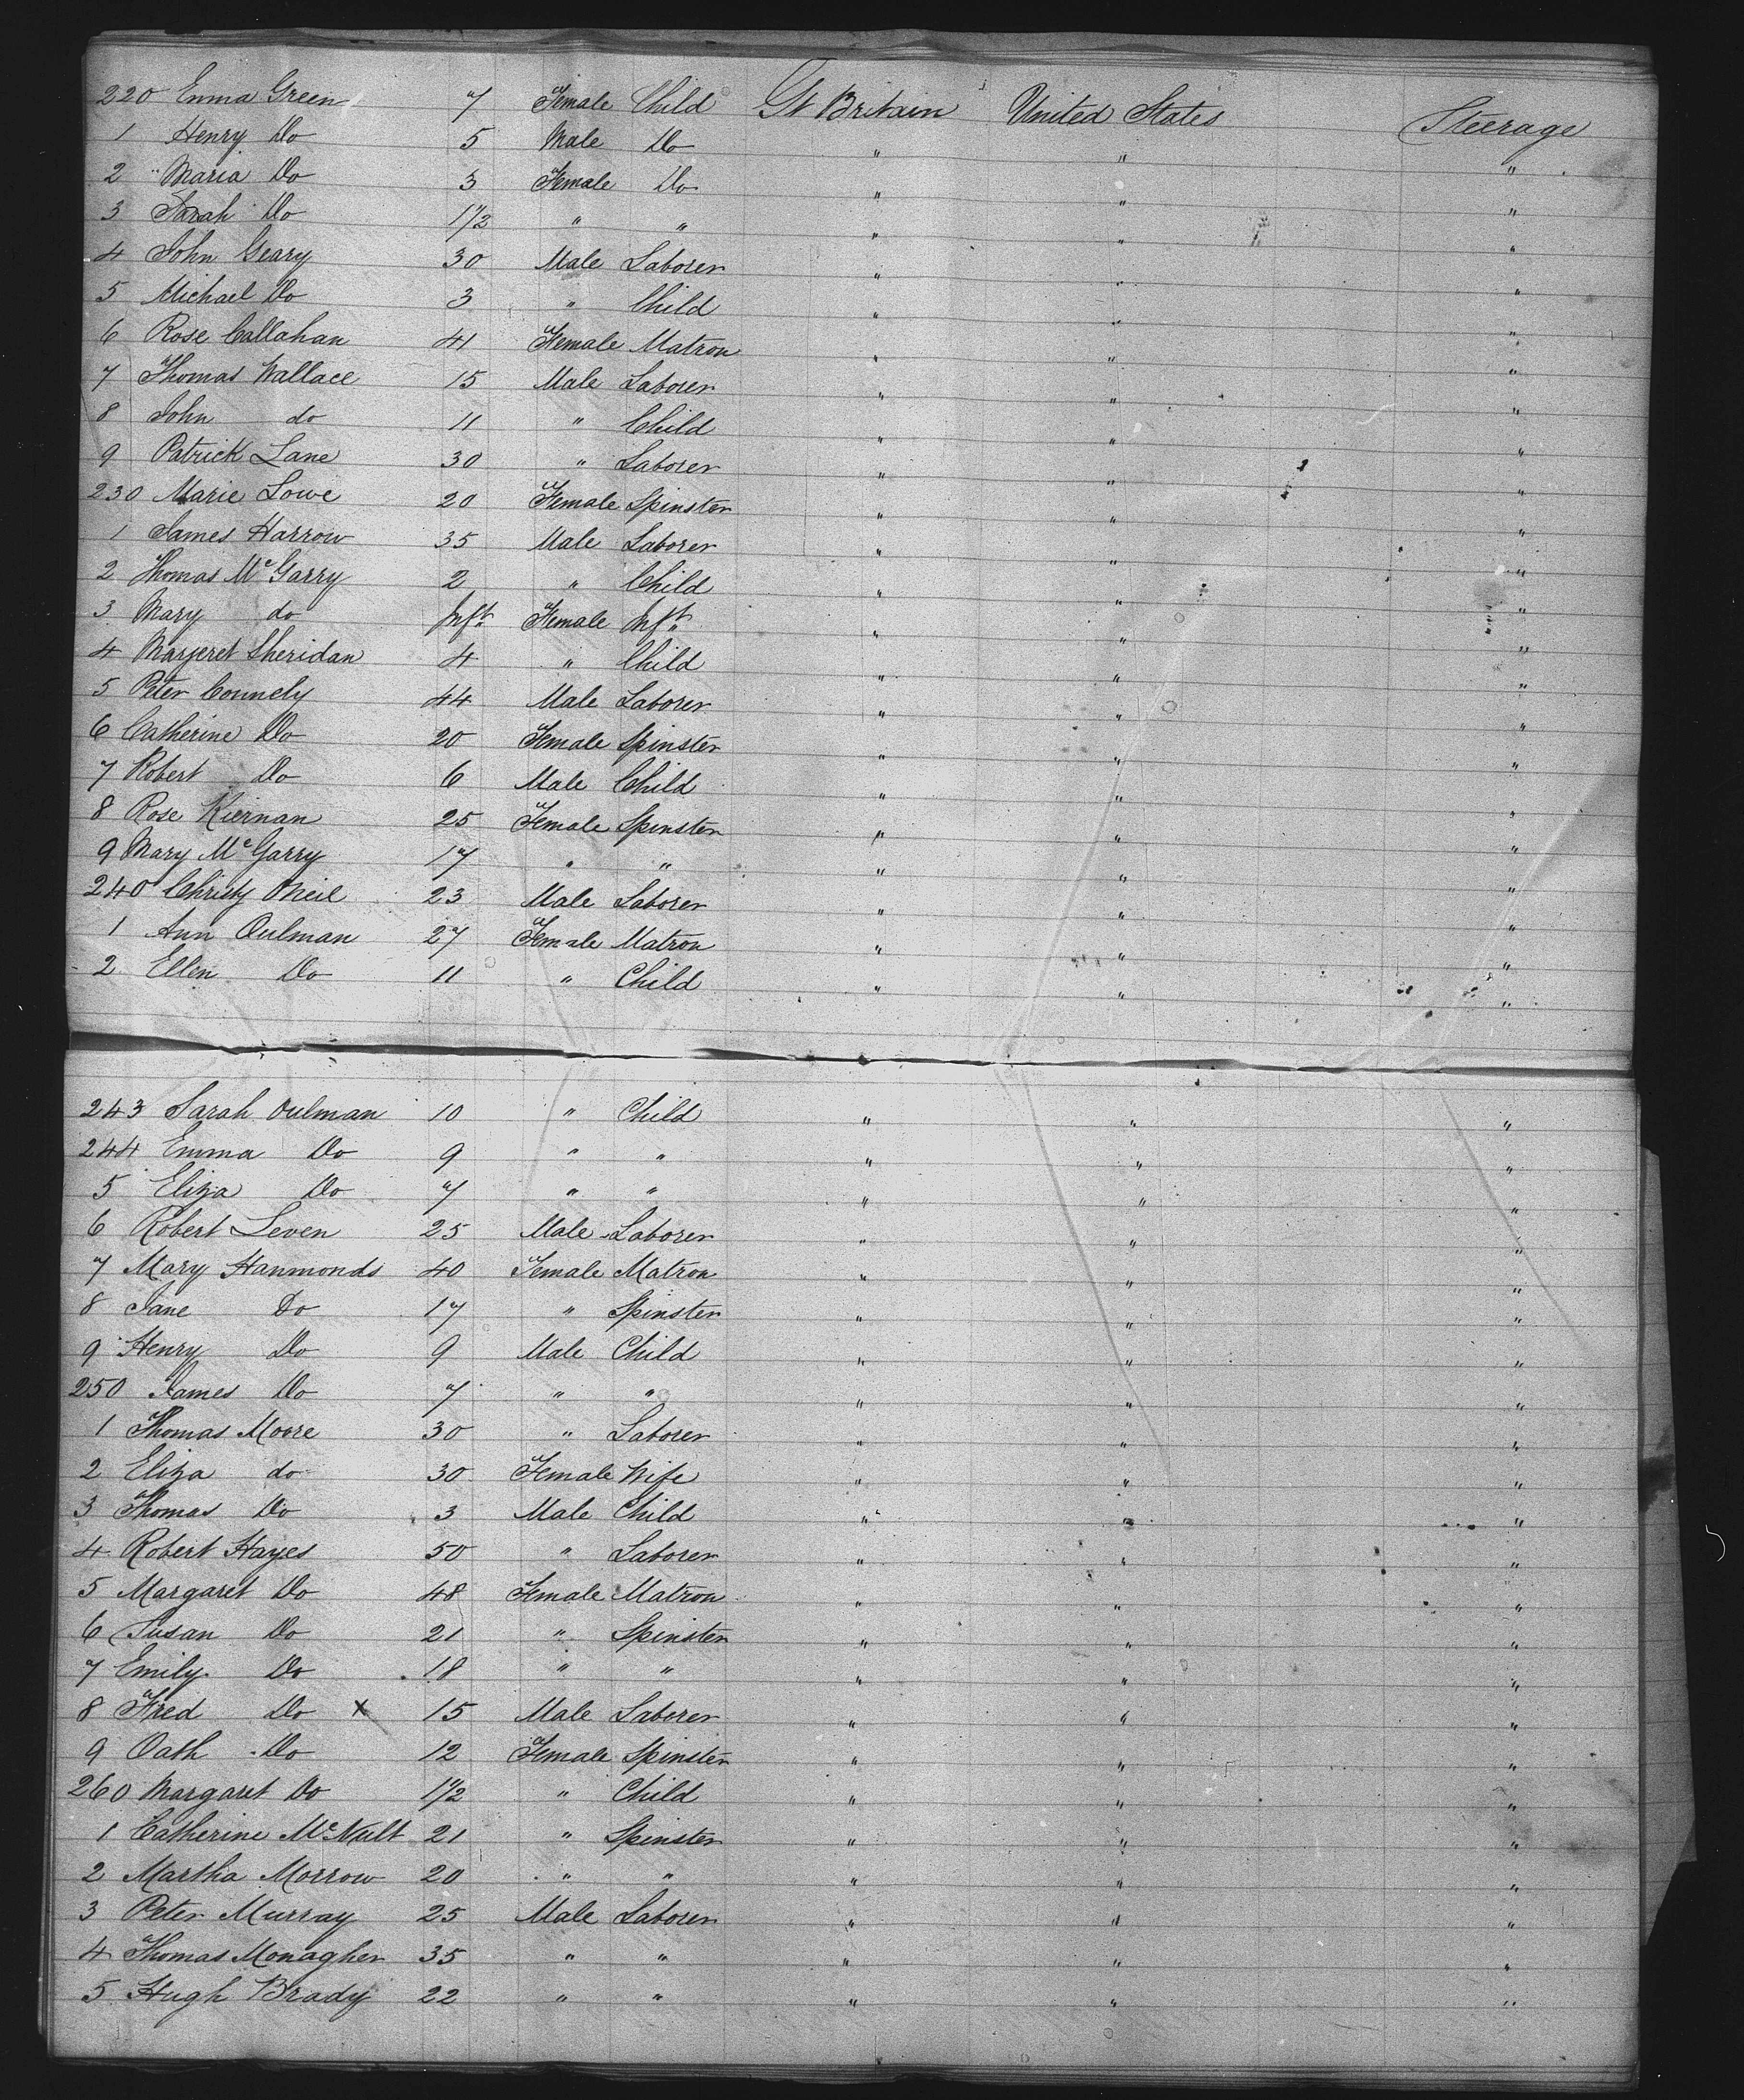 220 Emma Green 7 Female Child Gt Britain United States Steerage
1 Henry Do 5 Male Do " " "
2 " Maria Do 3 Female Do " " "
3 Sarah Do 1 1/2 " " " " "
4 John Geary 30 Male Laborer " " "
5 Michael Do 3 " Child " " "
6 Rose Callahan 41 Female Matron " " "
7 Thomas Wallace 15 Male Laborer " " "
8 John do 11 " Child " " "
9 Patrick Lane 30 " Laborer " " "
230 Marie Lowe 20 Female Spinster " " "
1 James Harrow 35 Male Laborer " " "
2 Thomas McGarry 2 " Child " " "
3 Mary do Inft Female Inft " " "
4 Margeret Sheridan 4 " Child " " "
5 Peter Connely 44 Male Laborer " " "
6 Catherine Do 20 Female Spinster " " "
7 Robert Do 6 Male Child " " "
8 Rose Kiernan 25 Female Spinster " " "
9 Mary McGarry 17 " " " " "
240 Christy Oneil 23 Male Laborer " " "
1 Ann Oulman 27 Female Matron " " "
2 Ellen Do 11 " Child " " "
243 Sarah Oulman 10 " Child " " "
244 Emma Do 9 " " " " "
5 Eliza Do 7 " " " " "
6 Robert Leven 25 Male Laborer " " "
7 Mary Hanmonds 40 Female Matron " " "
8 Jane Do 17 " Spinster " " "
9 Henry Do 9 Male Child " " "
250 James Do 7 " " " " "
1 Thomas Moore 30 " Laborer " " "
2 Eliza do 30 Female Wife " " "
3 Thomas Do 3 Male Child " " "
4 Robert Hayes 50 " Laborer " " "
5 Margaret Do 48 Female Matron " " "
6 Susan Do 21 " Spinster " " "
7 Emily Do 18 " " " " "
8 Fred Do X 15 Male Laborer " " "
9 Oath Do 12 Female Spinster " " "
260 Margaret Do 1 1/2 " Child " " "
1 Catherine McNult 21 " Spinster " " "
2 Martha Morrow 20 " " " " "
3 Peter Murray 25 Male Laborer " " "
4 Thomas Monagher 35 " " " " "
5 Hugh Brady 22 " " " " "